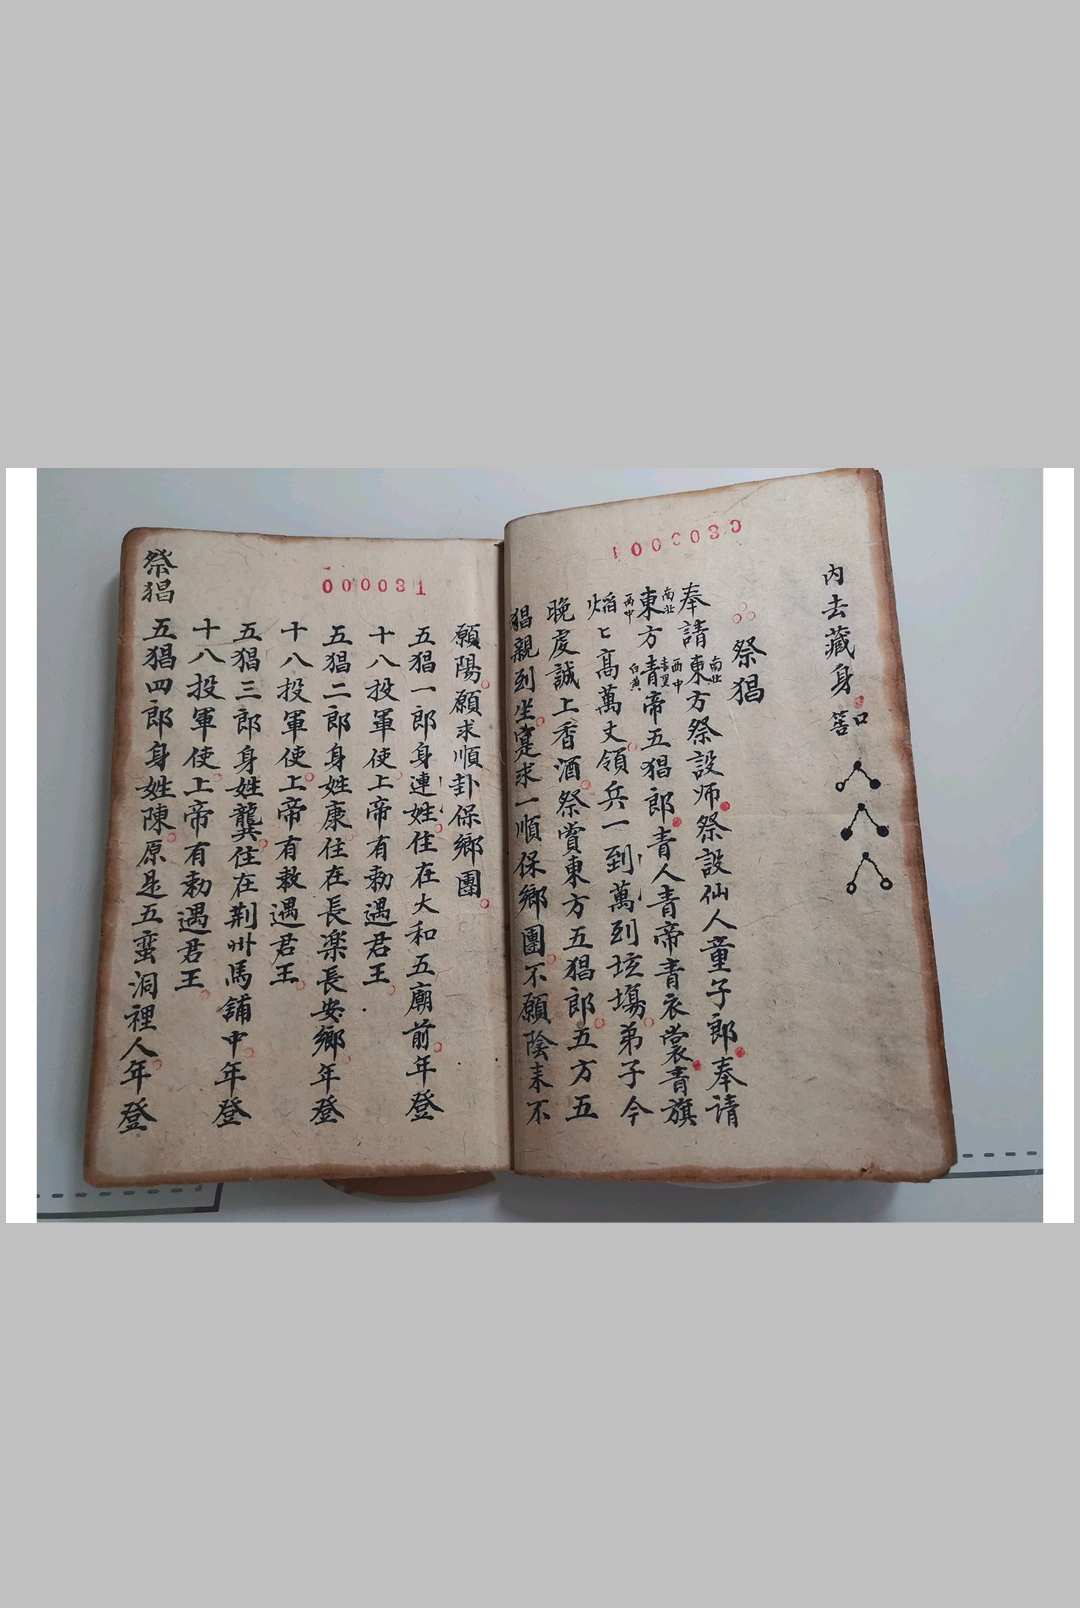 000030
內去藏身
祭猖
奉請東方祭設师祭設仙人童子郎奉请
南北
西中
東方青帝五猖郎青人青帝青衣裳青旗
南北
西中
青黑
白黄
焰〻高萬丈領兵一到萬到垓塲弟子今
晚虔誠上香酒祭賞東方五猖郎五方五
猖親到坐寔求一順保鄉團不願陰來不
000031
願陽願求順卦保鄉團
五猖一郎身連姓住在大和五廟前年登
十八投軍使上帝有勅遇君王
五猖二郎身姓康住在長楽長安鄉年登
十八投軍使上帝有敕遇君王
五猖三郎身姓龔住在荆州馬舖中年登
十八投軍使上帝有勅遇君王
五猖四郎身姓陳原是五蛮洞裡人年登
祭猖